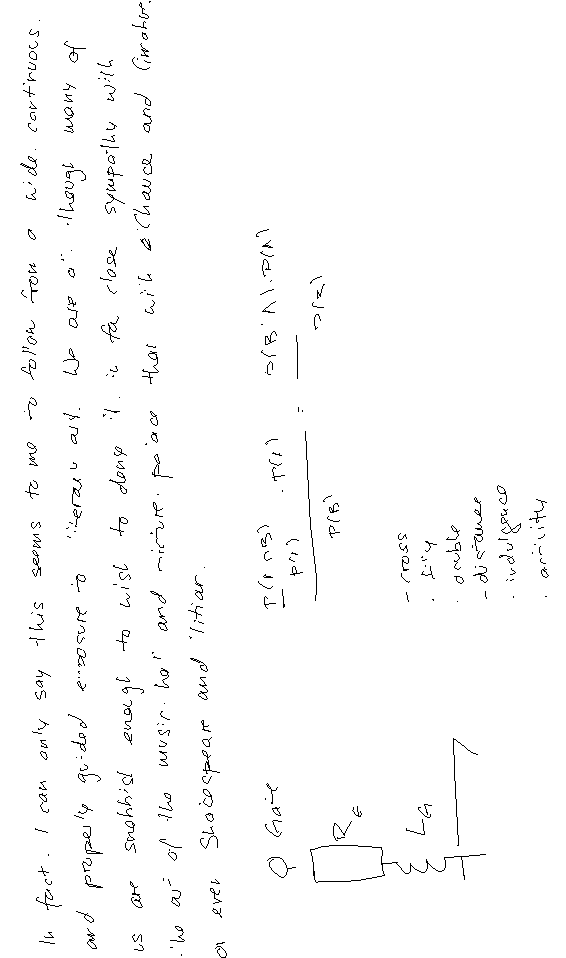 In fact. I can only say this seems to me to follow from a wide. continuous.
and properly guided exposure to art. We are a. though many of
us are snobbish enough to wish to deny it. in far close sympathy with
the art of the music. hall and picture. palace than with Chaucer and
or even Shakespeare and Titian.
P(A∩B) . P(A) P(B|A).P(A)
P(A) =
P(B) P(B)
- cross
. fifty
. double
- distance
. indulgence
. agility
Gate
R_G
L_G